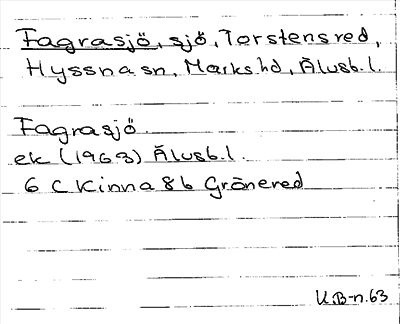 Fagrasjö, sjö, Torstensred,
Hyssna sn, Marks hd, Älvsb. l.
Fagrasjö
ek (1963) Älvsb. l.
6 C Kinna 8b Grönered
UB-n. 63